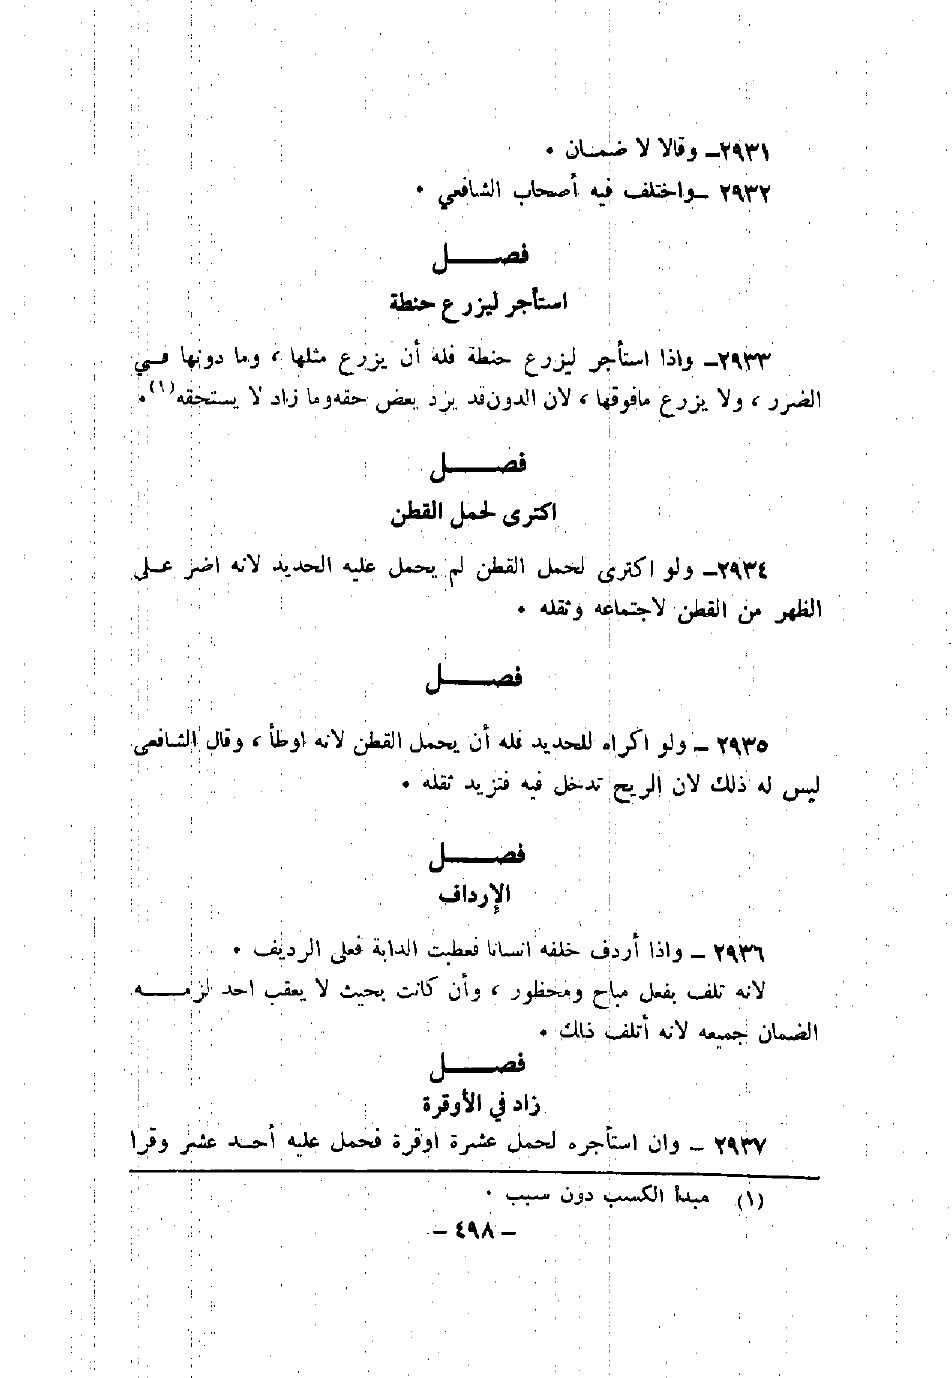 ٢٩٣١ـ وقالا لا ضمـان ٠
٢٩٣٢ ـواختلف فيه أصحاب الشافعي ٠
فصـــــل
استأجر ليزرع حنطة
٢٩٣٣ـ واذا استأجر ليزرع حنطة فله أن يزرع مثلها ، وما دونها فـي
الضرر ، ولا يزرع مافوقها ، لان الدون قد يرد بعض حقه وما زاد لا يستحقه(١)٠
فصـــــل
اكترى لحمل القطن
٢٩٣٤ـ ولو اكترى لحمل القطن لم يحمل عليه الحديد لانه اضر علـى
الظهر من القطن لاجتماعه وثقله ٠
فصـــــل
٢٩٣٥ ـ ولو اكراه للحديد فله أن يحمل القطن لانه اوطأ ، وقال الشافعى
ليس له ذلك لان الريح تدخل فيه فتزيد ثقله ٠
فصـــــل
الإرداف
٢٩٣٦ ـ واذا أردف خلفه انسانا فعطبت الدابة فعلى الرديف ٠
لانه تلف بفعل مباح ومحظور ، وأن كانت بحيث لا يعقب احد لزمـــه
الضمان جميعه لانه أتلف ذلك ٠
فصـــــل
زاد في الأوقرة
٢٩٣٧ ـ وان استأجره لحمل عشرة اوقرة فحمل عليه أحـد عشر وقرا
(١) مبدأ الكسب دون سبب ٠
ـ ٤٩٨ ـ